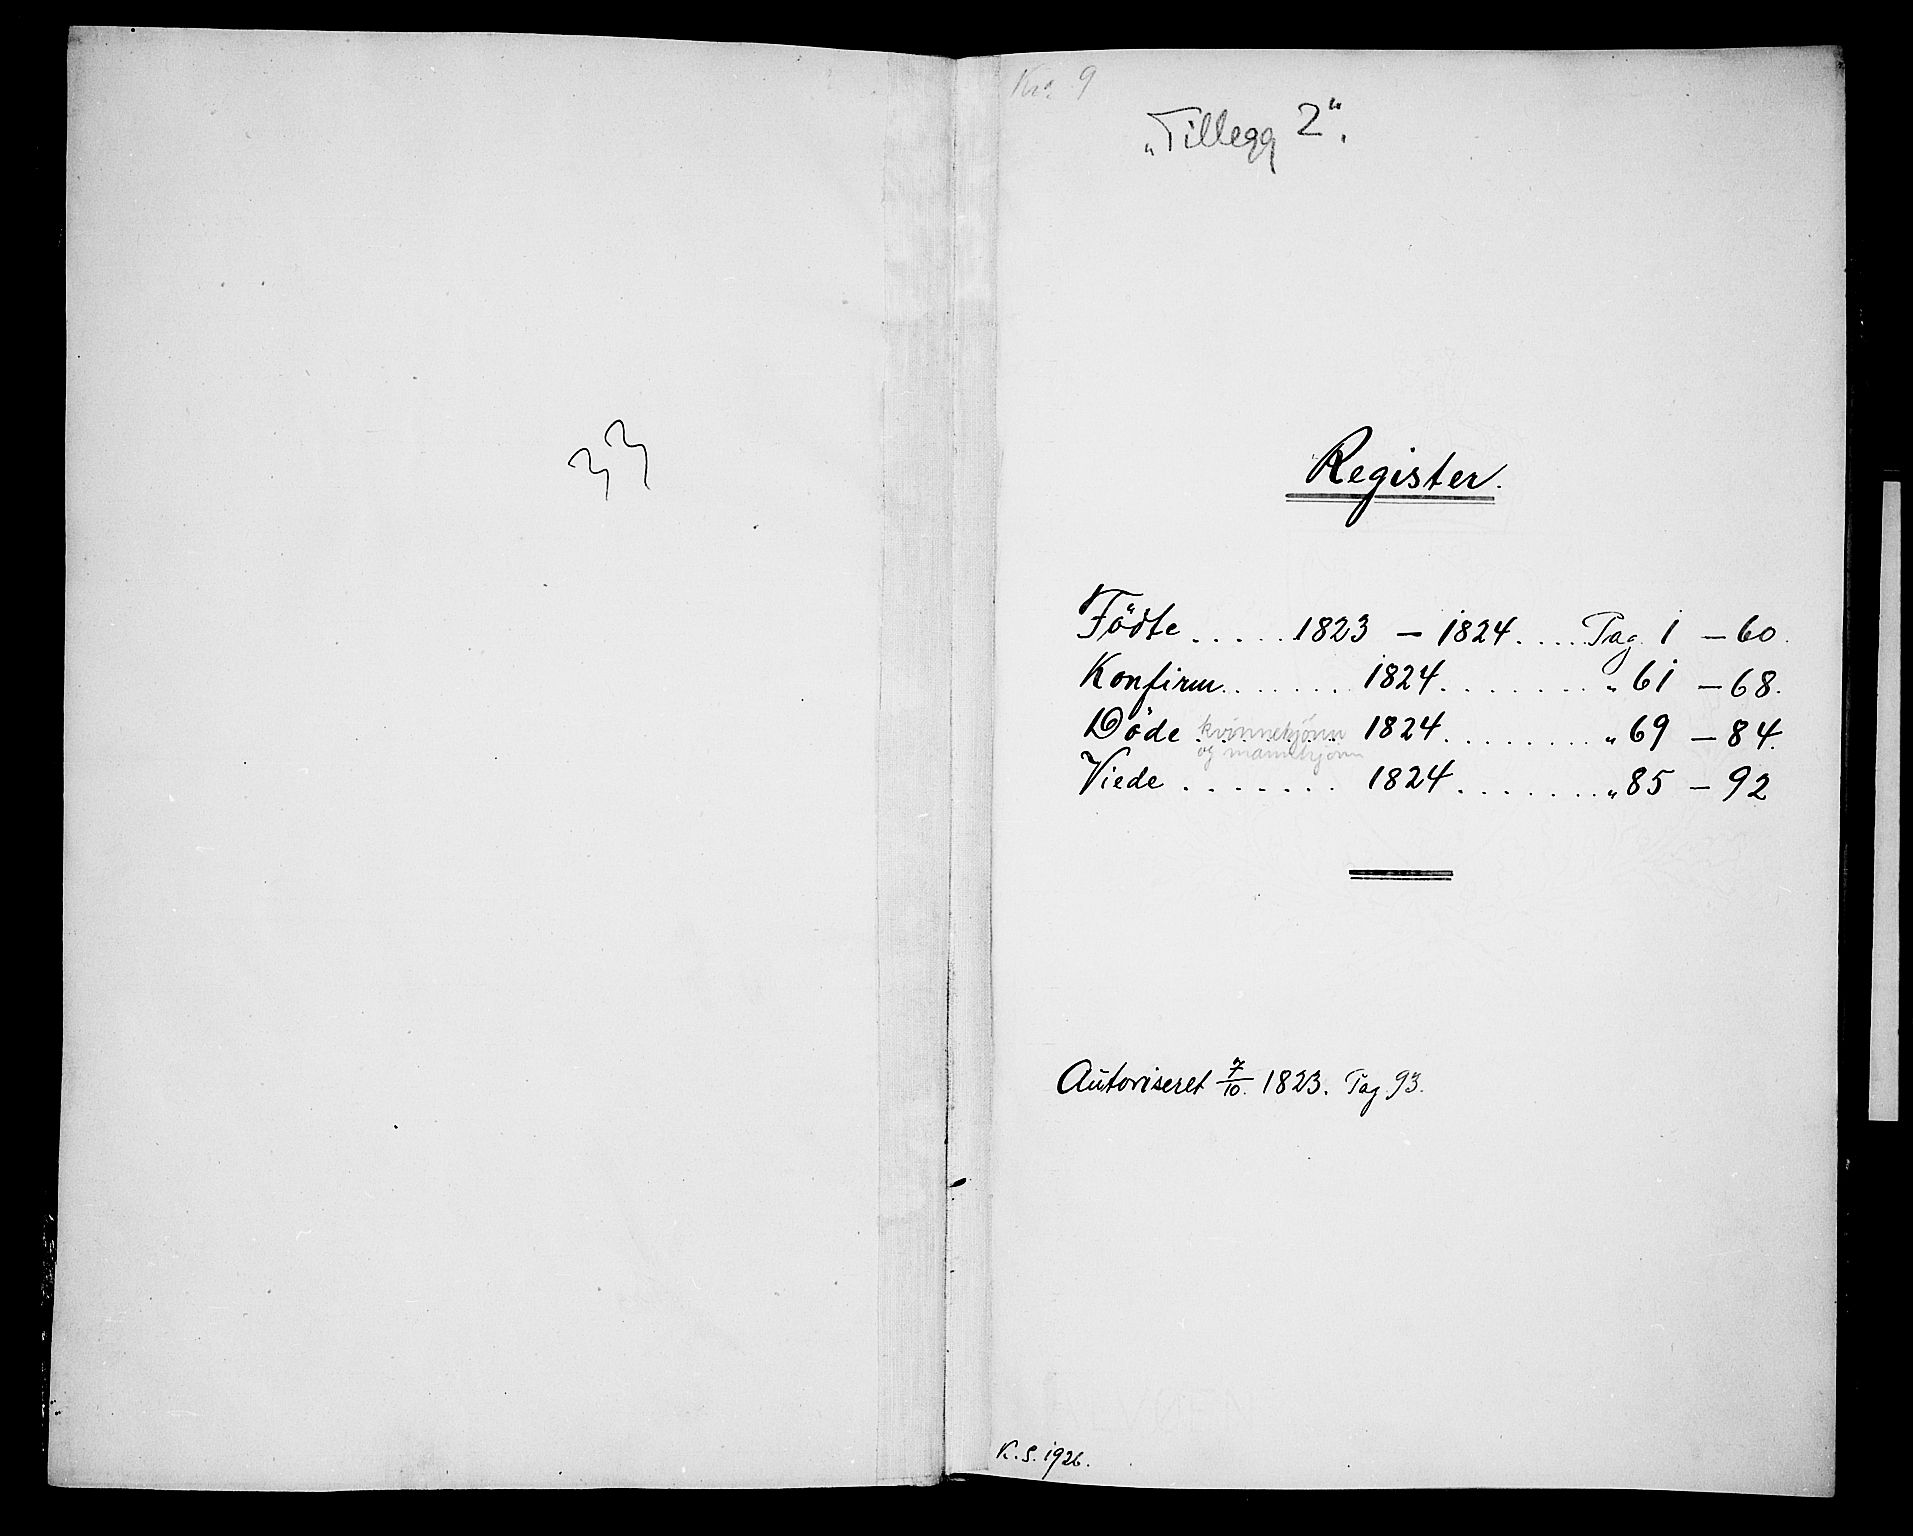 33
9
„Tillegg 2“.
Register.
Födte ..... 1823 – 1824 .... Pag. 1 – 60.
Konfirm ....... 1824 ........ „ 61 – 68.
Döde kvinnekjönn 1824 ........ „ 69 – 84.
og mannkjönn
Viede ....... 1824 ........ „ 85 – 92
Autoriseret 7/10. 1823. Pag 93.
K.S. 1926.